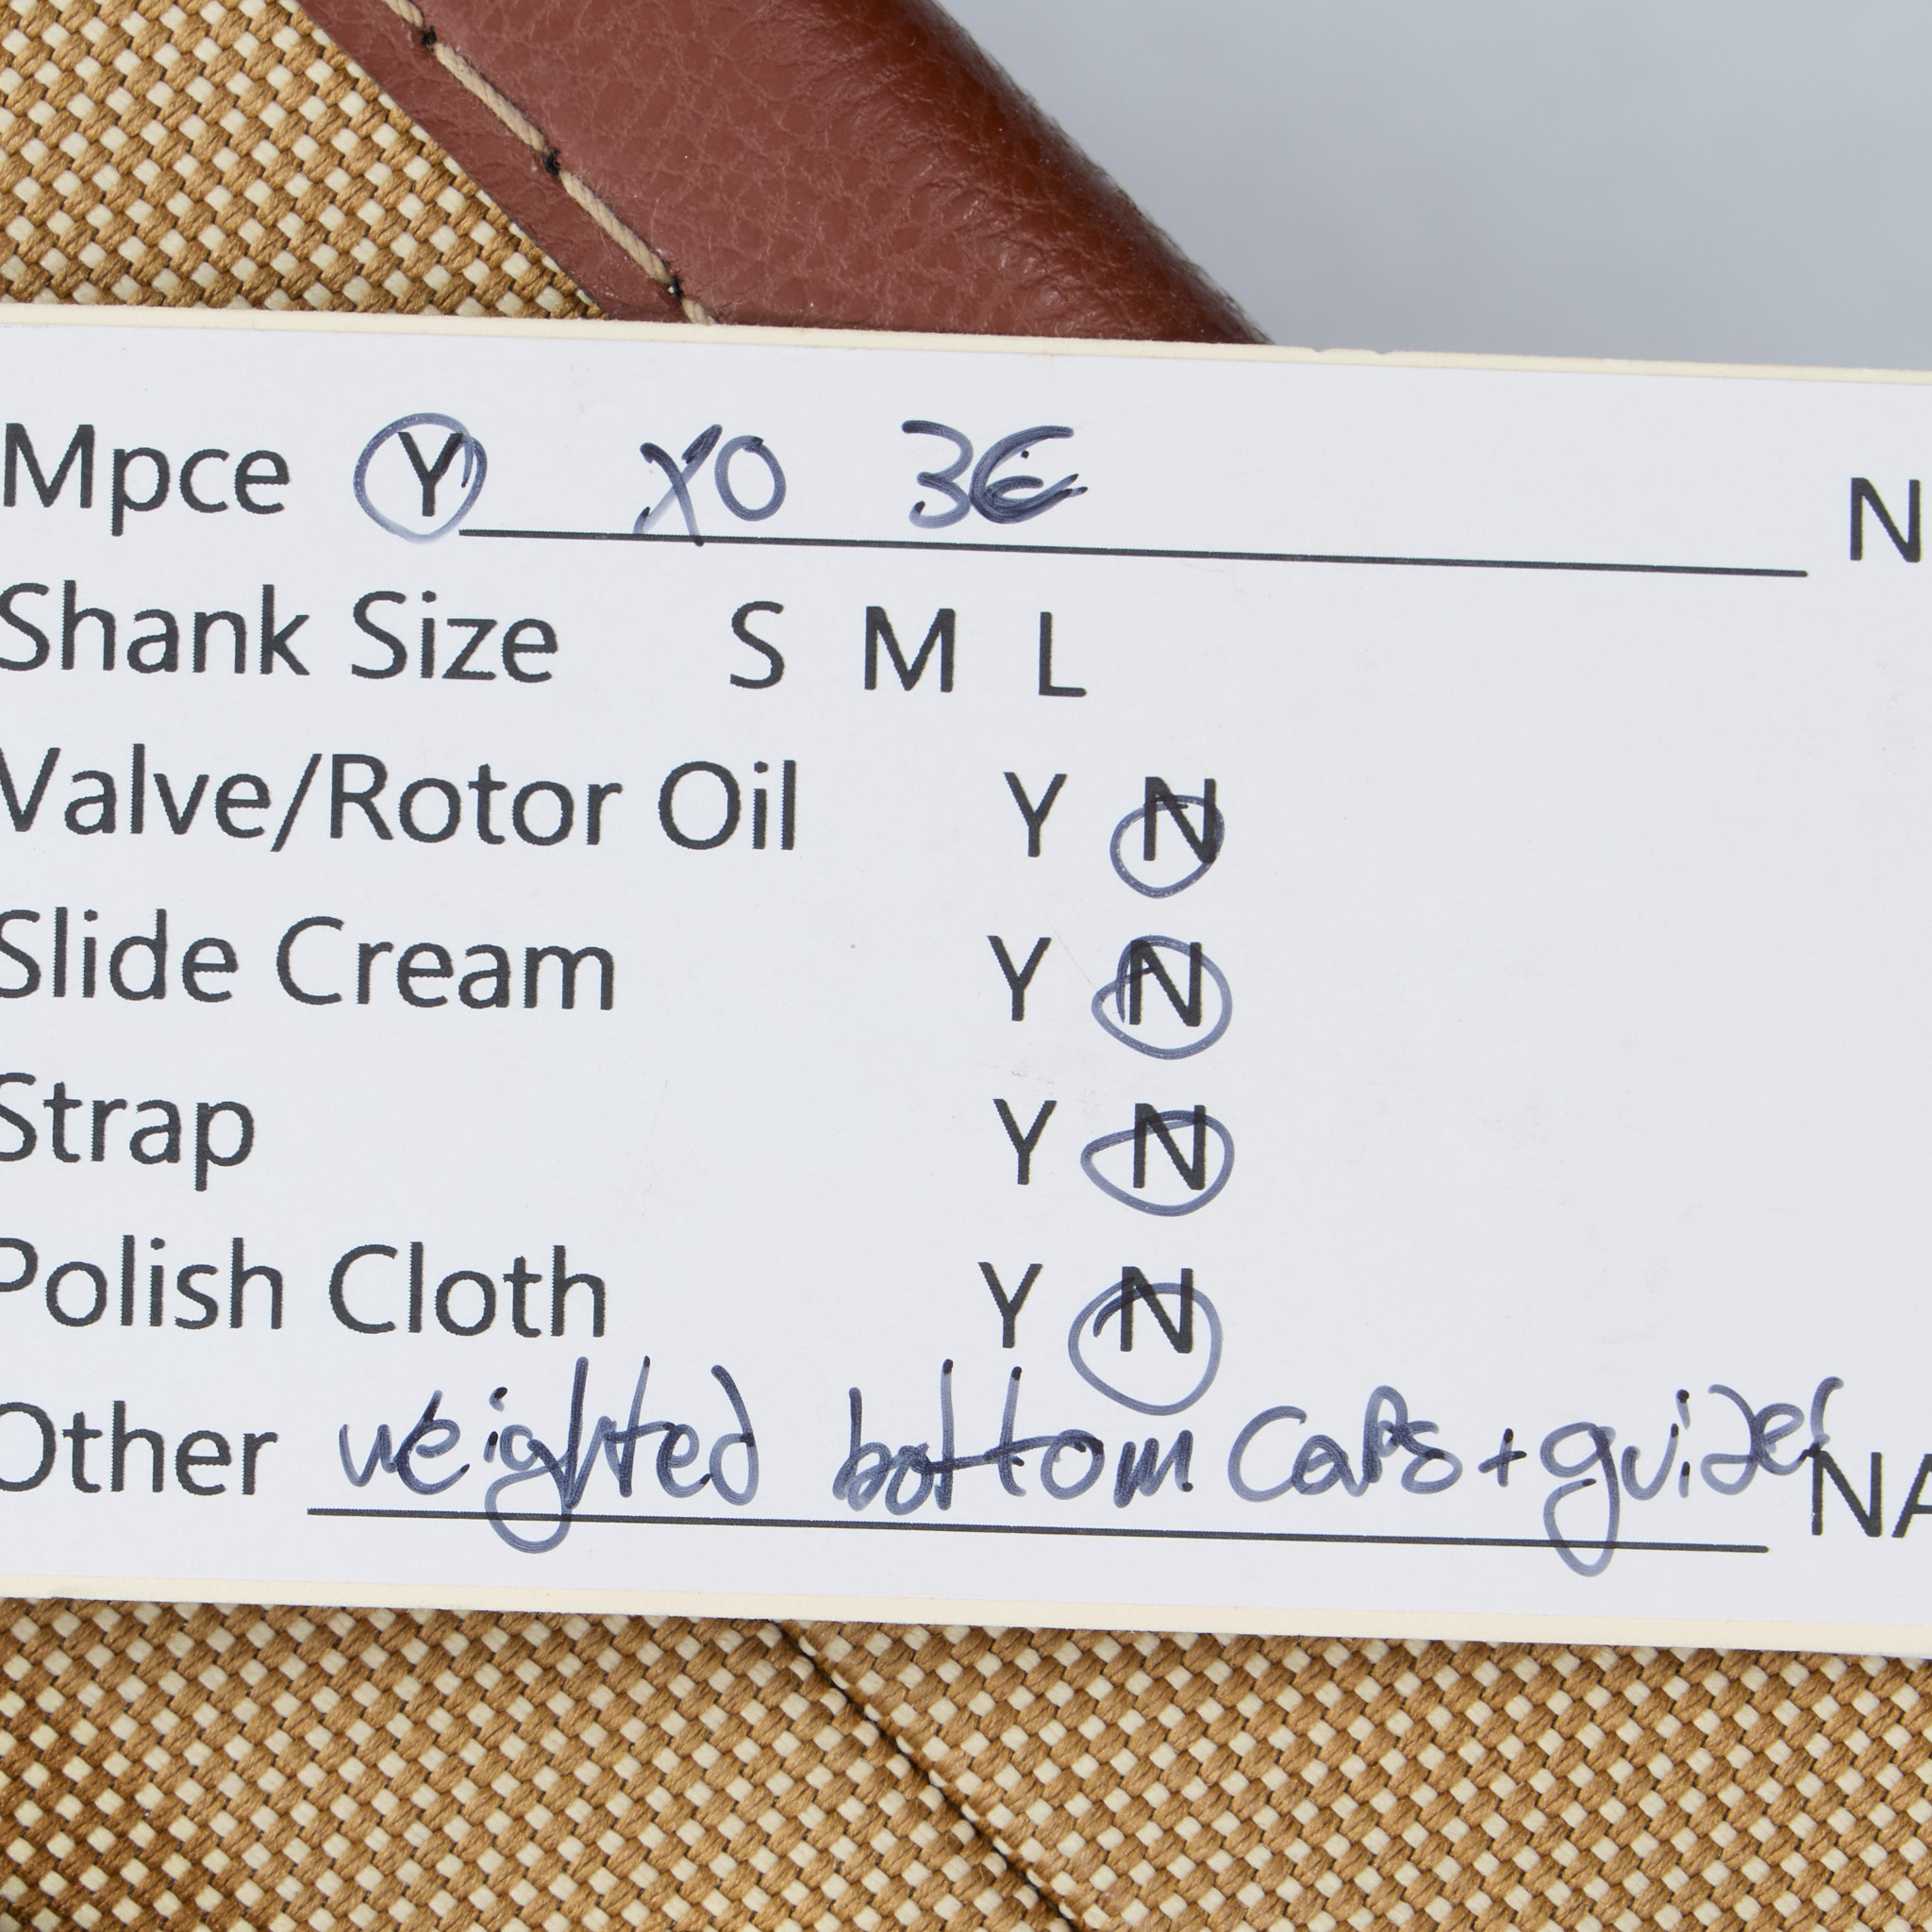 Mpce Y XO 3C N
Shank Size S M L
Valve/Rotor Oil Y N
Slide Cream Y N
Strap Y N
Polish Cloth Y N
Other weighted bottom Caps + guides NA